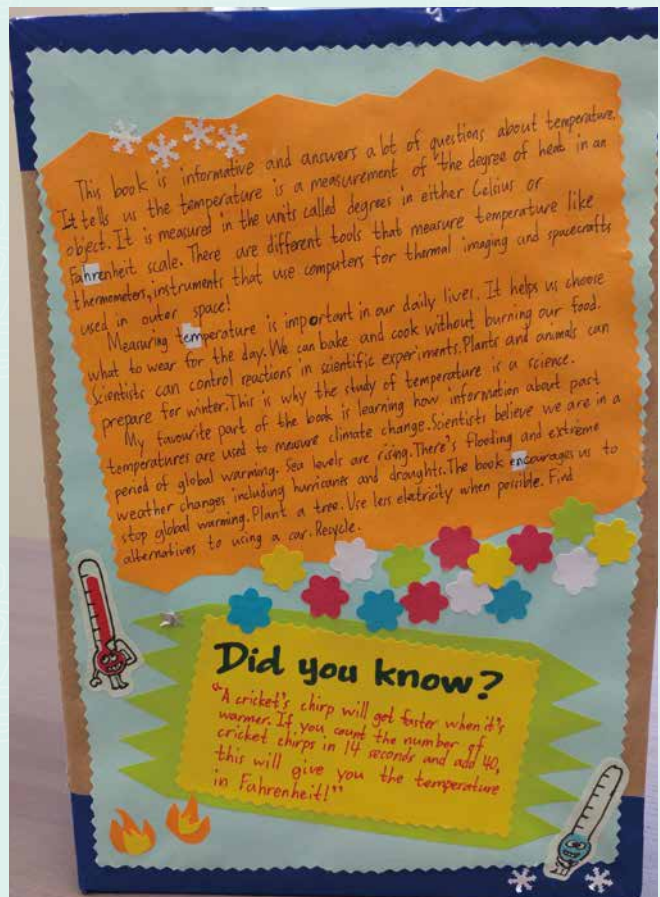 This book is informative and answers a lot of questions about temperature.
It tells us the temperature is a measurement of "the degree of heat in an
object. It is measured in the units called degrees in either Celsius or
Fahrenheit scale. There are different tools that measure temperature like
thermometers, instruments that use computers for thermal imaging and spacecrafts
used in outer space!
Measuring temperature is important in our daily lives. It helps us choose
what to wear for the day. We can bake and cook without burning our food.
Scientists can control reactions in scientific experiments. Plants and animals can
prepare for winter. This is why the study of temperature is a science.
My favourite part of the book is learning how information about part
temperatures are used to measure climate change. Scientists believe we are in a
period of global warming. Sea levels are rising. There's flooding and extreme
weather changes including hurricanes and droughts. The book encourages us to
stop global warming. Plant a tree. Use less eletricity when possible. Find
alternatives to using a car. Recycle.
Did you know?
"A cricket's chirp will get faster when it's
warmer. If you count the number of
cricket chirps in 14 seconds and add 40,
this will give you the temperature
in Fahrenheit!"